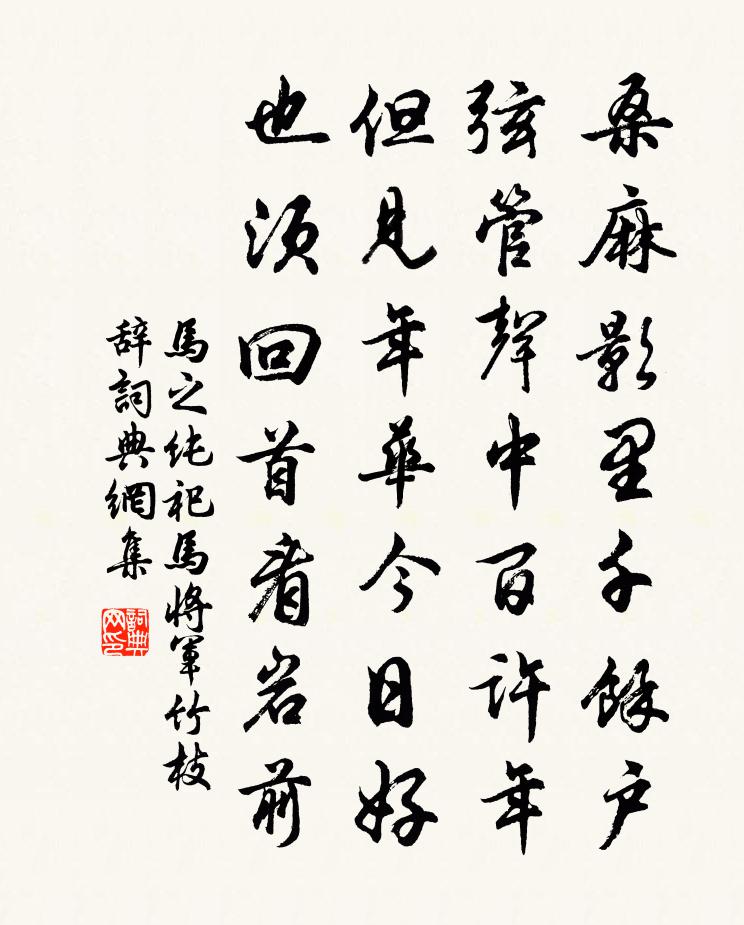 桑麻影里千餘户
弦管聲中百許年
但見年華今日好
也須回首看岩前
馬之純祀馬將軍竹枝
辞詞典網集
詞典网印